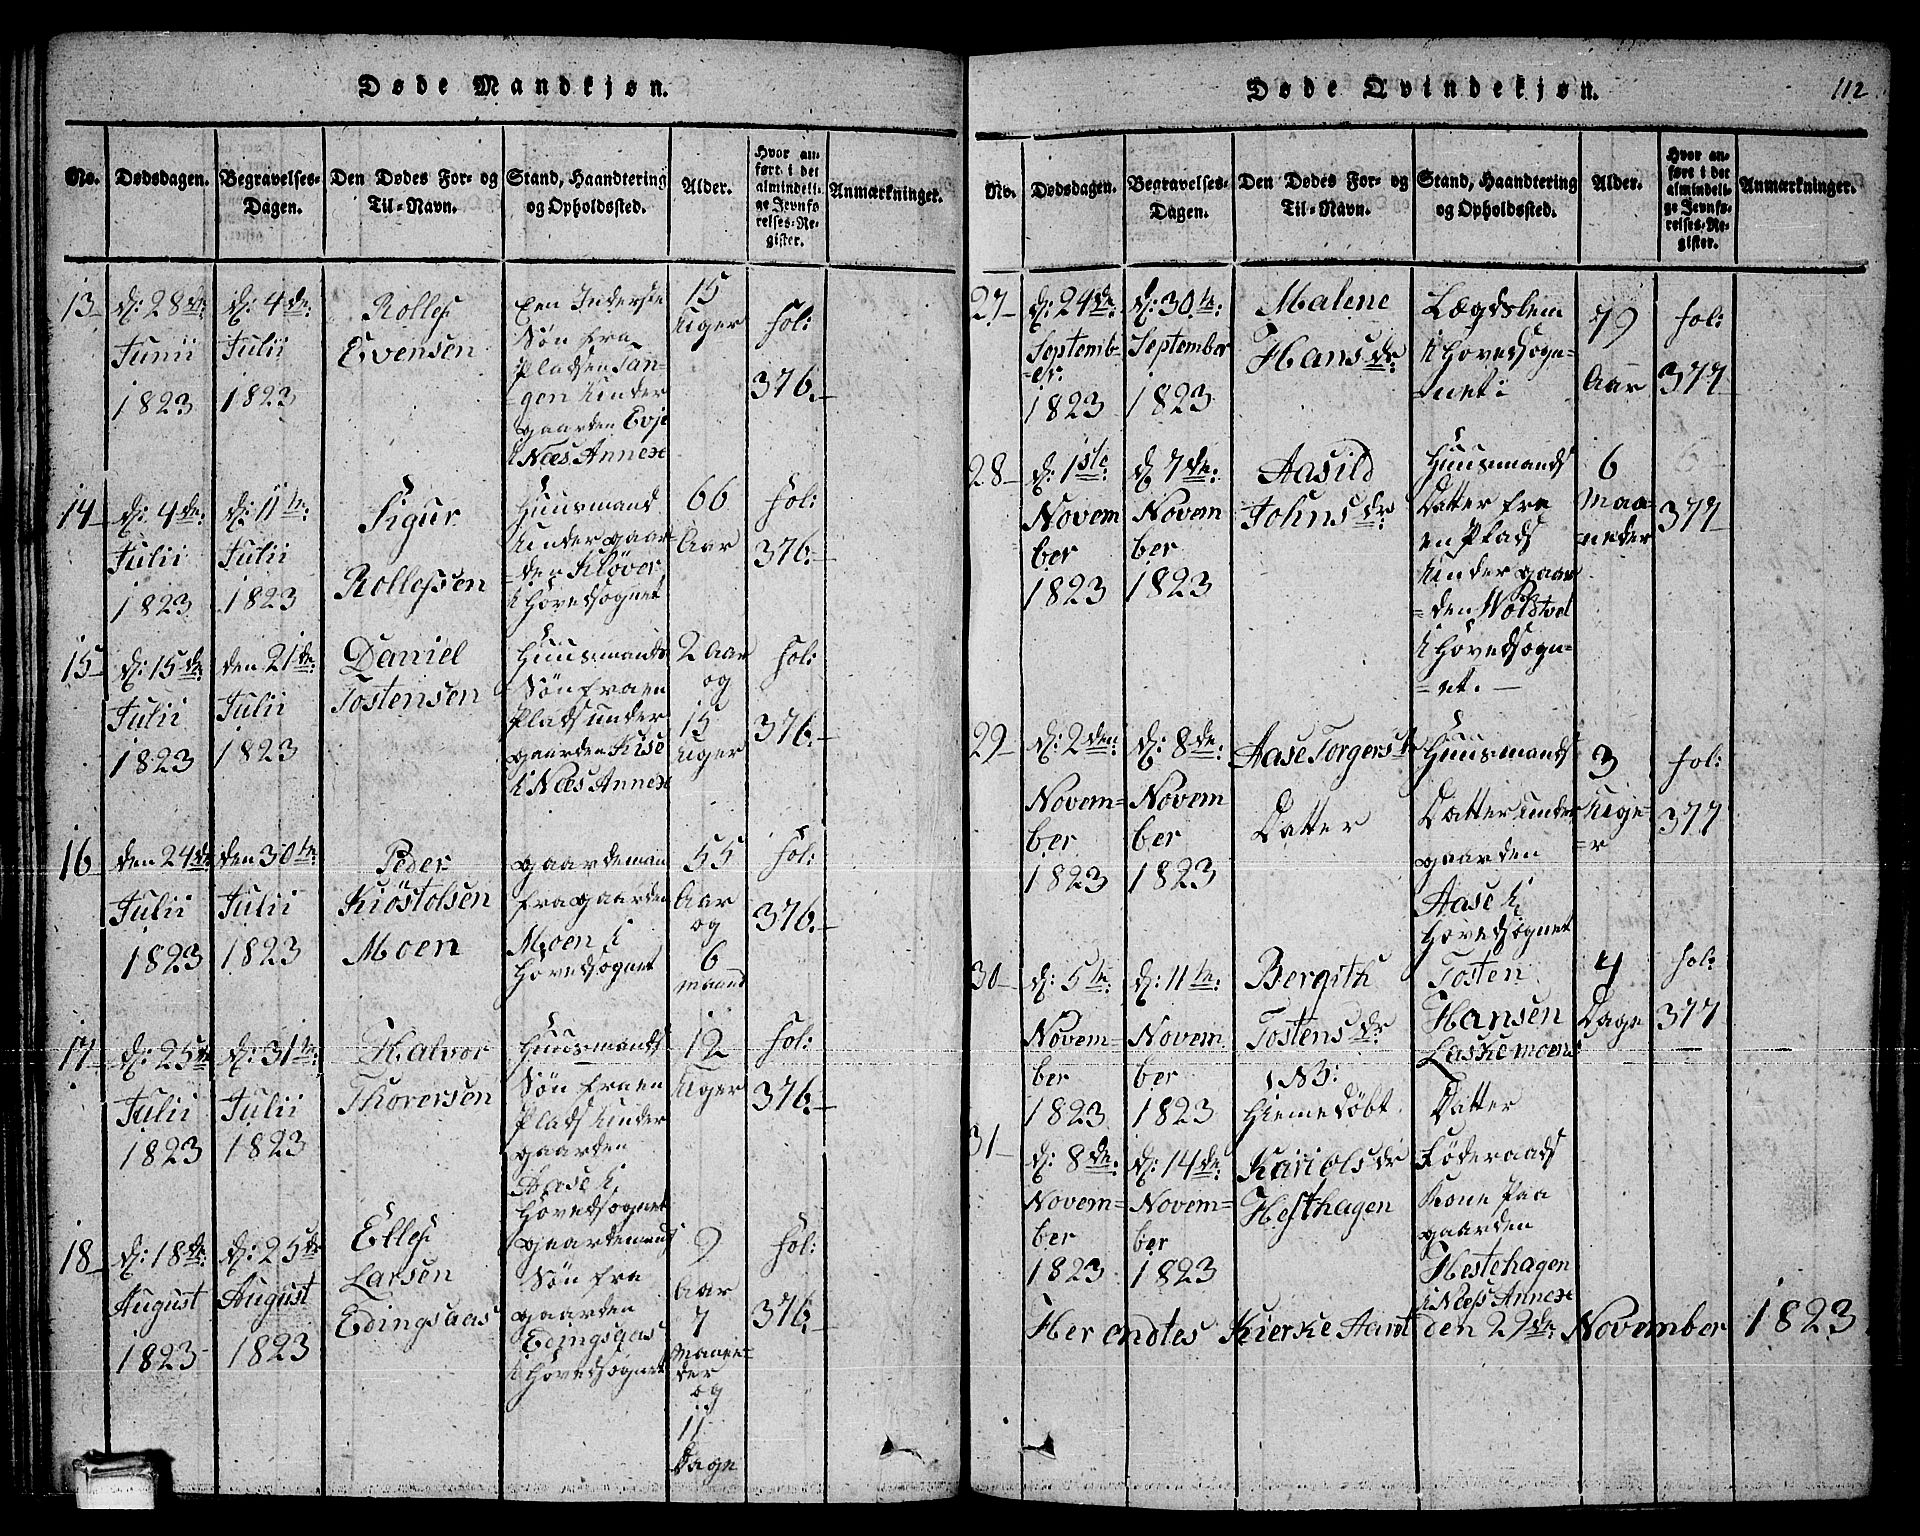 Døde Mandkjøn.
No.
Dødsdagen.
Begravelses-
Dagen.
Den Dødes For- og
Til-Navn.
Stand, Haandtering
og Opholdssted.
Alder.
Hvor an-
ført i det
almindeli-
ge Jevnfø-
relses-Re-
gister.
Anmærkninger.
13
d: 28de
Junii
1823
d: 4de:
Julii
1823
Rollef
Evensen
Een Inderste
Søn fra
Pladsen Tan-
gen under
gaarden Evje
i Næs Annex
15
Uger
fol:
376.
14
d: 4de:
Julii
1823
d: 11te:
Julii
1823
Sigur
Rollefsen
Huusmand
under gaar-
den Kløver
i Hovedsognet
66
Aar
fol:
376.
15
d: 15de
Julii
1823
den 21de:
Julii
1823
Daniel
Tostensen
Huusmands
Søn fra en
Plads under
gaarden Kise
i Næs Annex
2 Aar
og
15
Uger
fol:
376.
16
den 24de
Julii
1823
den 30te:
Julii
1823
Peder
Kiøstolsen
Moen
gaardeman
fra gaarden
Moen i
Hovedsognet
55
Aar
og
6
maand
fol:
376.
17
d: 25de
Julii
1823
d: 31te:
Julii
1823
Halvor
Thoversen
Huusmands
Søn fra en
Plads under
gaarden
Aase i
Hovedsognet
12
Uger
fol:
376.
18
d: 18de
August
1823
d: 25de
August
1823
Ellef
Larsen
Edingsaas
gaardemands
Søn fra
gaarden
Edingsaas
i Hovedsognet
9
Aar
7
Maane-
der
og
11
Dage
fol:
376.
Døde Qvindekjøn.
112
No.
Dødsdagen.
Begravelses-
Dagen.
Den Dødes For- og
Til-Navn.
Stand, Haandtering
og Opholdssted.
Alder.
Hvor an-
ført i det
almindeli-
ge Jevnfø-
relses-Re-
gister.
Anmærkninger.
27
d: 24de:
Septemb-
er.
1823
d: 30te:
September
1823
Malene
Hansdr
Lægdslem
i Hovedsogn-
net:
79
Aar
fol:
377
28
d: 1ste:
Novem
ber
1823
d 7de:
Novem
ber
1823
Aasild
Johnsdr
Huusmands
Datter fra
en Plads
under gaar
=den Woldtvet
i Hovedsogn=
=et.
6
Maa=
neder
377
29
d: 2den:
Novem=
ber
1823
d: 8de:
Novem
ber
1823
Aase Torgers
Datter
Huusmands
Datter under
gaarden
Aase i
Hovedsognet
3
Uge-
=r
fol:
377
30
d: 5te:
Novem-
ber
1823
d: 11te:
Novem
ber
1823
Bergith
Tostensdr
NB:
Hiemedøbt.
Tosten
Hansen
Laskemoens
Datter
4
Dage
fol:
377
31
d: 8de:
Novem=
ber
1823
d: 14de:
Novem=
ber
1823
Kari Olsdr
Hesthagen
Føderaads
Kone paa
gaarden
Hestehagen
i Næss Annex
Her endtes Kierke Aaret den 29de: November 1823